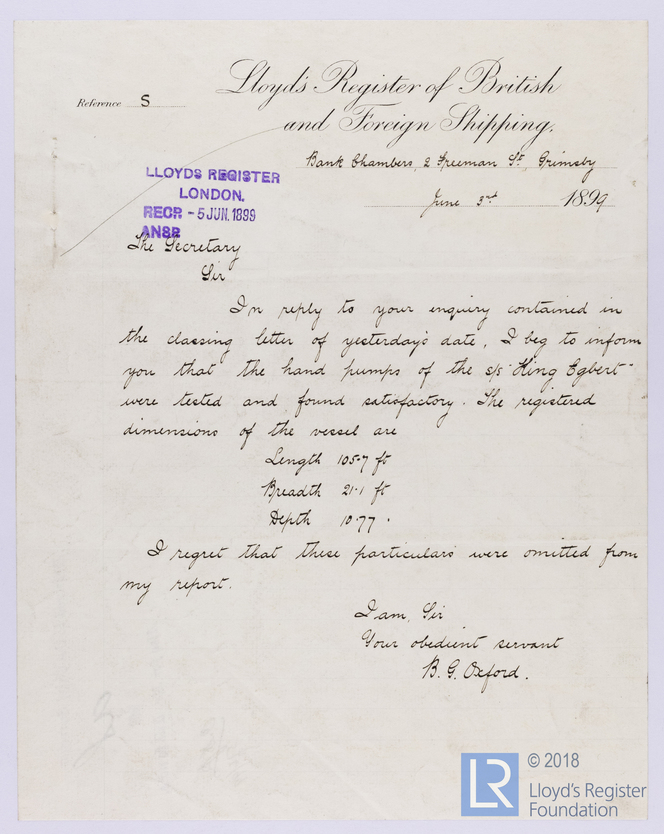 Lloyd's Register of British
and Foreign Shipping.
Reference S
Bank Chambers, 2 Freeman St, Grimsby
June 3rd 1899
LLOYDS REGISTER
LONDON.
RECR - 5 JUN. 1899
ANSR
The Secretary
Sir
In reply to your enquiry contained in
the classing letter of yesterday's date, I beg to inform
you that the hand pumps of the s/s "King Egbert"
were tested and found satisfactory. The registered
dimensions of the vessel are
Length 105.7 ft
Breadth 21.1 ft
Depth 10.77 "
I regret that these particulars were omitted from
my report.
I am, Sir
Your obedient servant
B. G. Oxford.
LR
© 2018
Lloyd's Register
Foundation